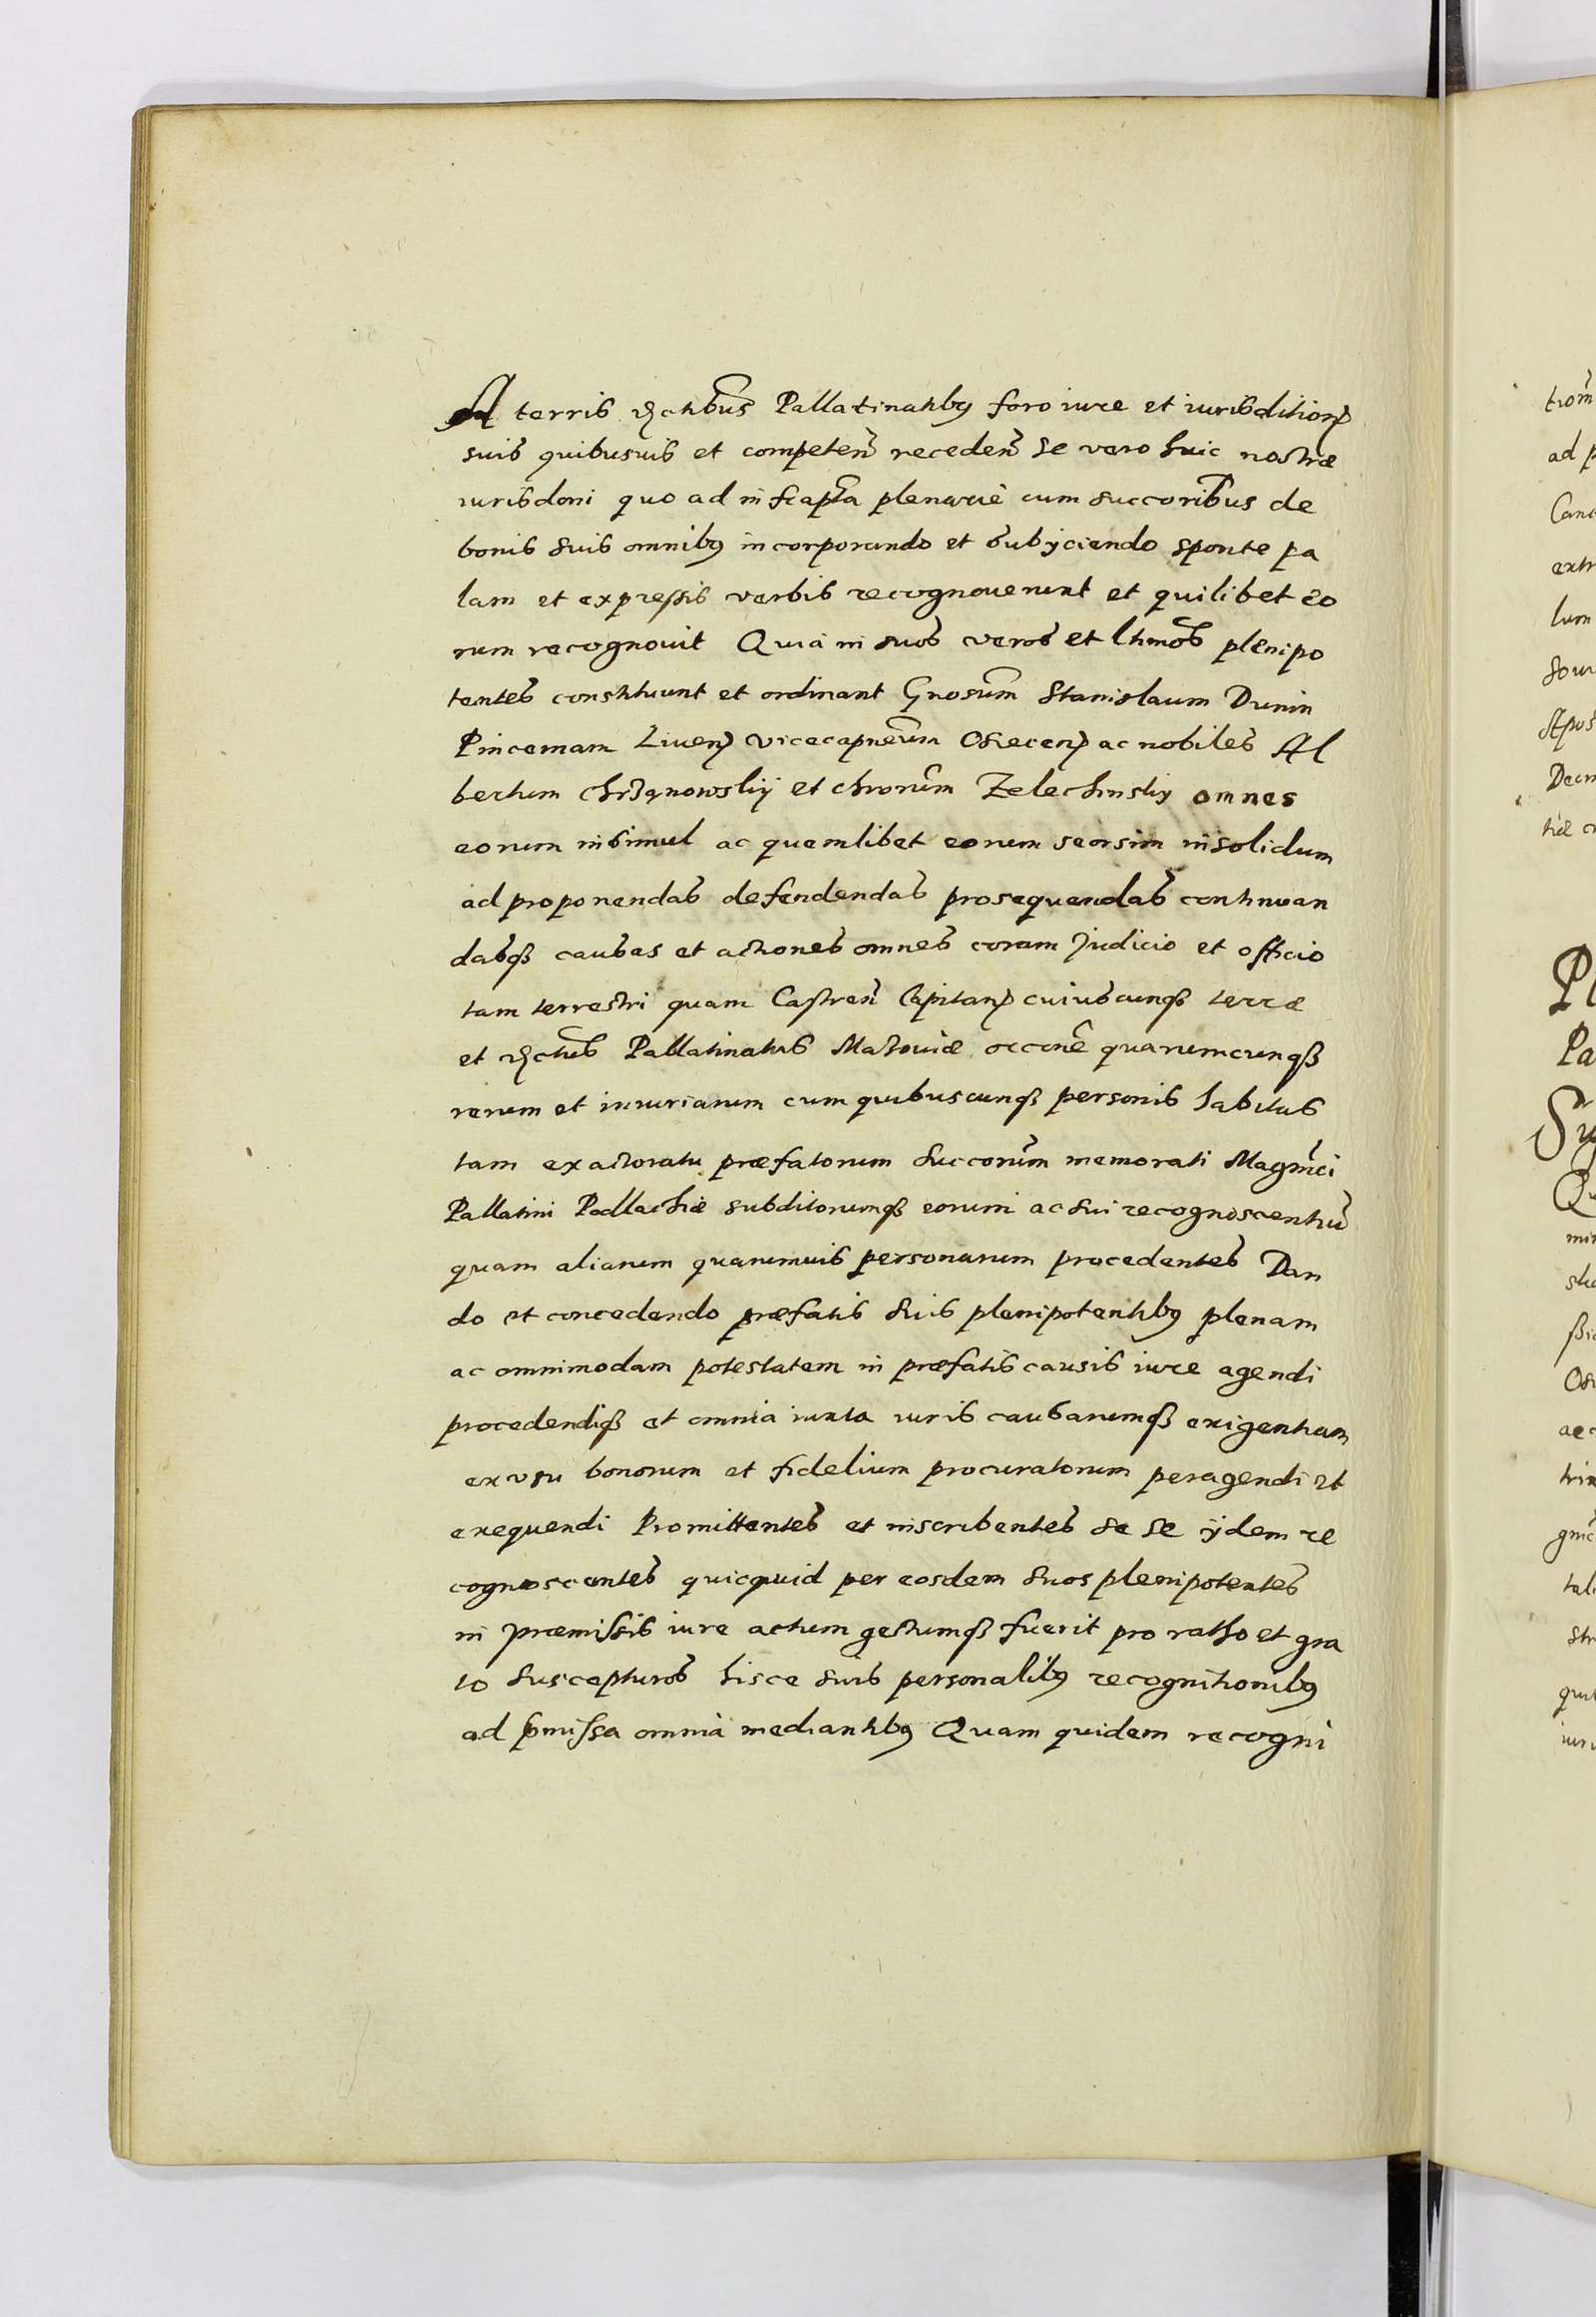 A terris districtibus Pallatinatibus foro iure et iurisdition
suis quibusuis et competen receden se vero huic nostræ
iurisdoni quo ad infrapta plenariè cum succoribus de
bonis suis omnibus incorporando et subijciendo sponte pa
lam et expressis verbis recognouerunt et quilibet eo
rum recognouit Quià in suos veros et lthmos plenipo
tentes constituunt et ordinant Gnosum Stanislaum Dunin
Pincernam Liuen vicecapneum Osiecen ac nobiles Al
bertum et Zelechinskij omnes
eorum insimul ac quemlibet eorum seorsim insolidum
ad proponendas defendendas prosequendas continuan
dasque causas et actiones omnes coram Judicio et officio
tam terrestri quam Castren Capitan cuiuscunque terræ
et districtus Pallatinatus Mazouiæ occone quarumcunque
rerum et iniuriarum cum quibuscunque personis habitas
tam ex actoratu præfatorum succorum memorati Magnci
Pallatini Podlachiæ subditorumque eorum ac sui recognoscentiu
quam aliarum quarumuis personarum procedentes Dan
do et concedendo præfatis suis plenipotentibus plenam
ac omnimodam potestatem in præfatis causis iure agendi
procedendique et omnia iuxta iuris causarumque exigentiam
ex vsu bonorum et fidelium procuratorum peragendi et
exequendi Promittentes et inscribentes se se ijdem re
cognoscentes quicquid per eosdem suos plenipotentes
in præmissis iure actum gestumque fuerit pro ratho et gra
to suscepturos hisce suis personalibus recognitionibus
ad pmissa omnia mediantibus Quam quidem recogni